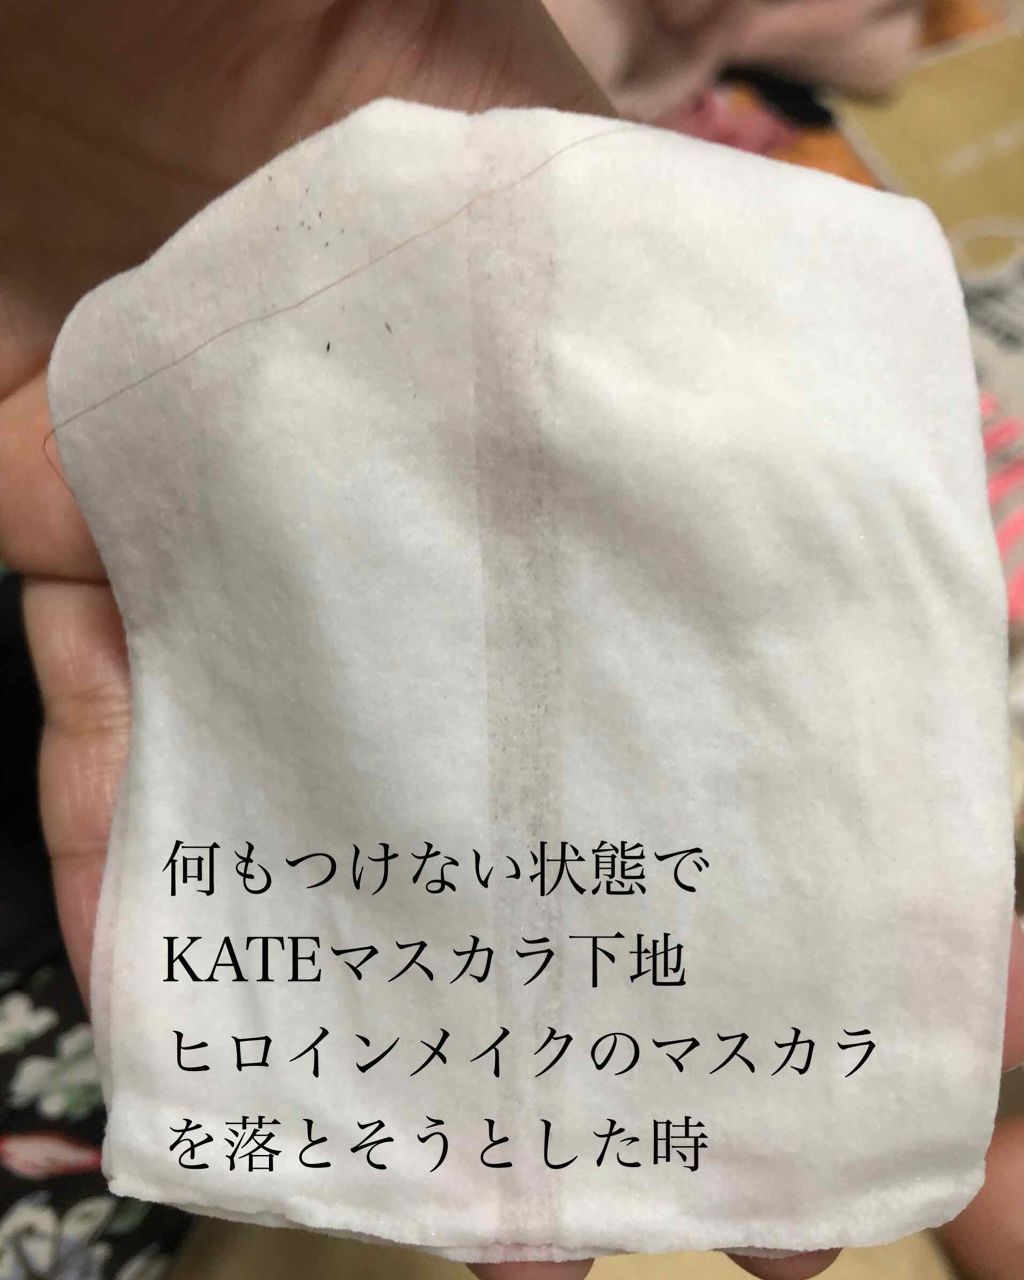 何もつけない状態で
KATEマスカラ下地
ヒロインメイクのマスカラ
を落とそうとした時